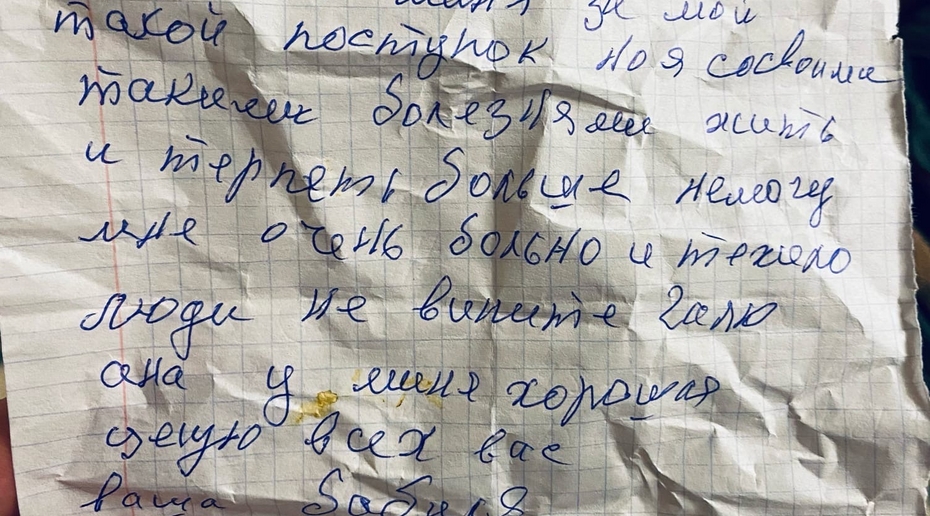 за мой
такой поступок но я сосвоими
такими болезнями жить
и терпеть больше немогу
мне очень больно и тежело
люди не вините Галю
она у миня хорошая
целую всех вас
ваша бабуля